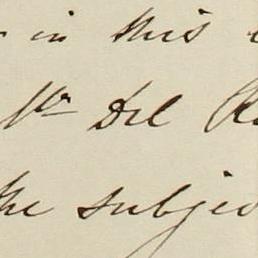 in this
Mr Del
the subjec